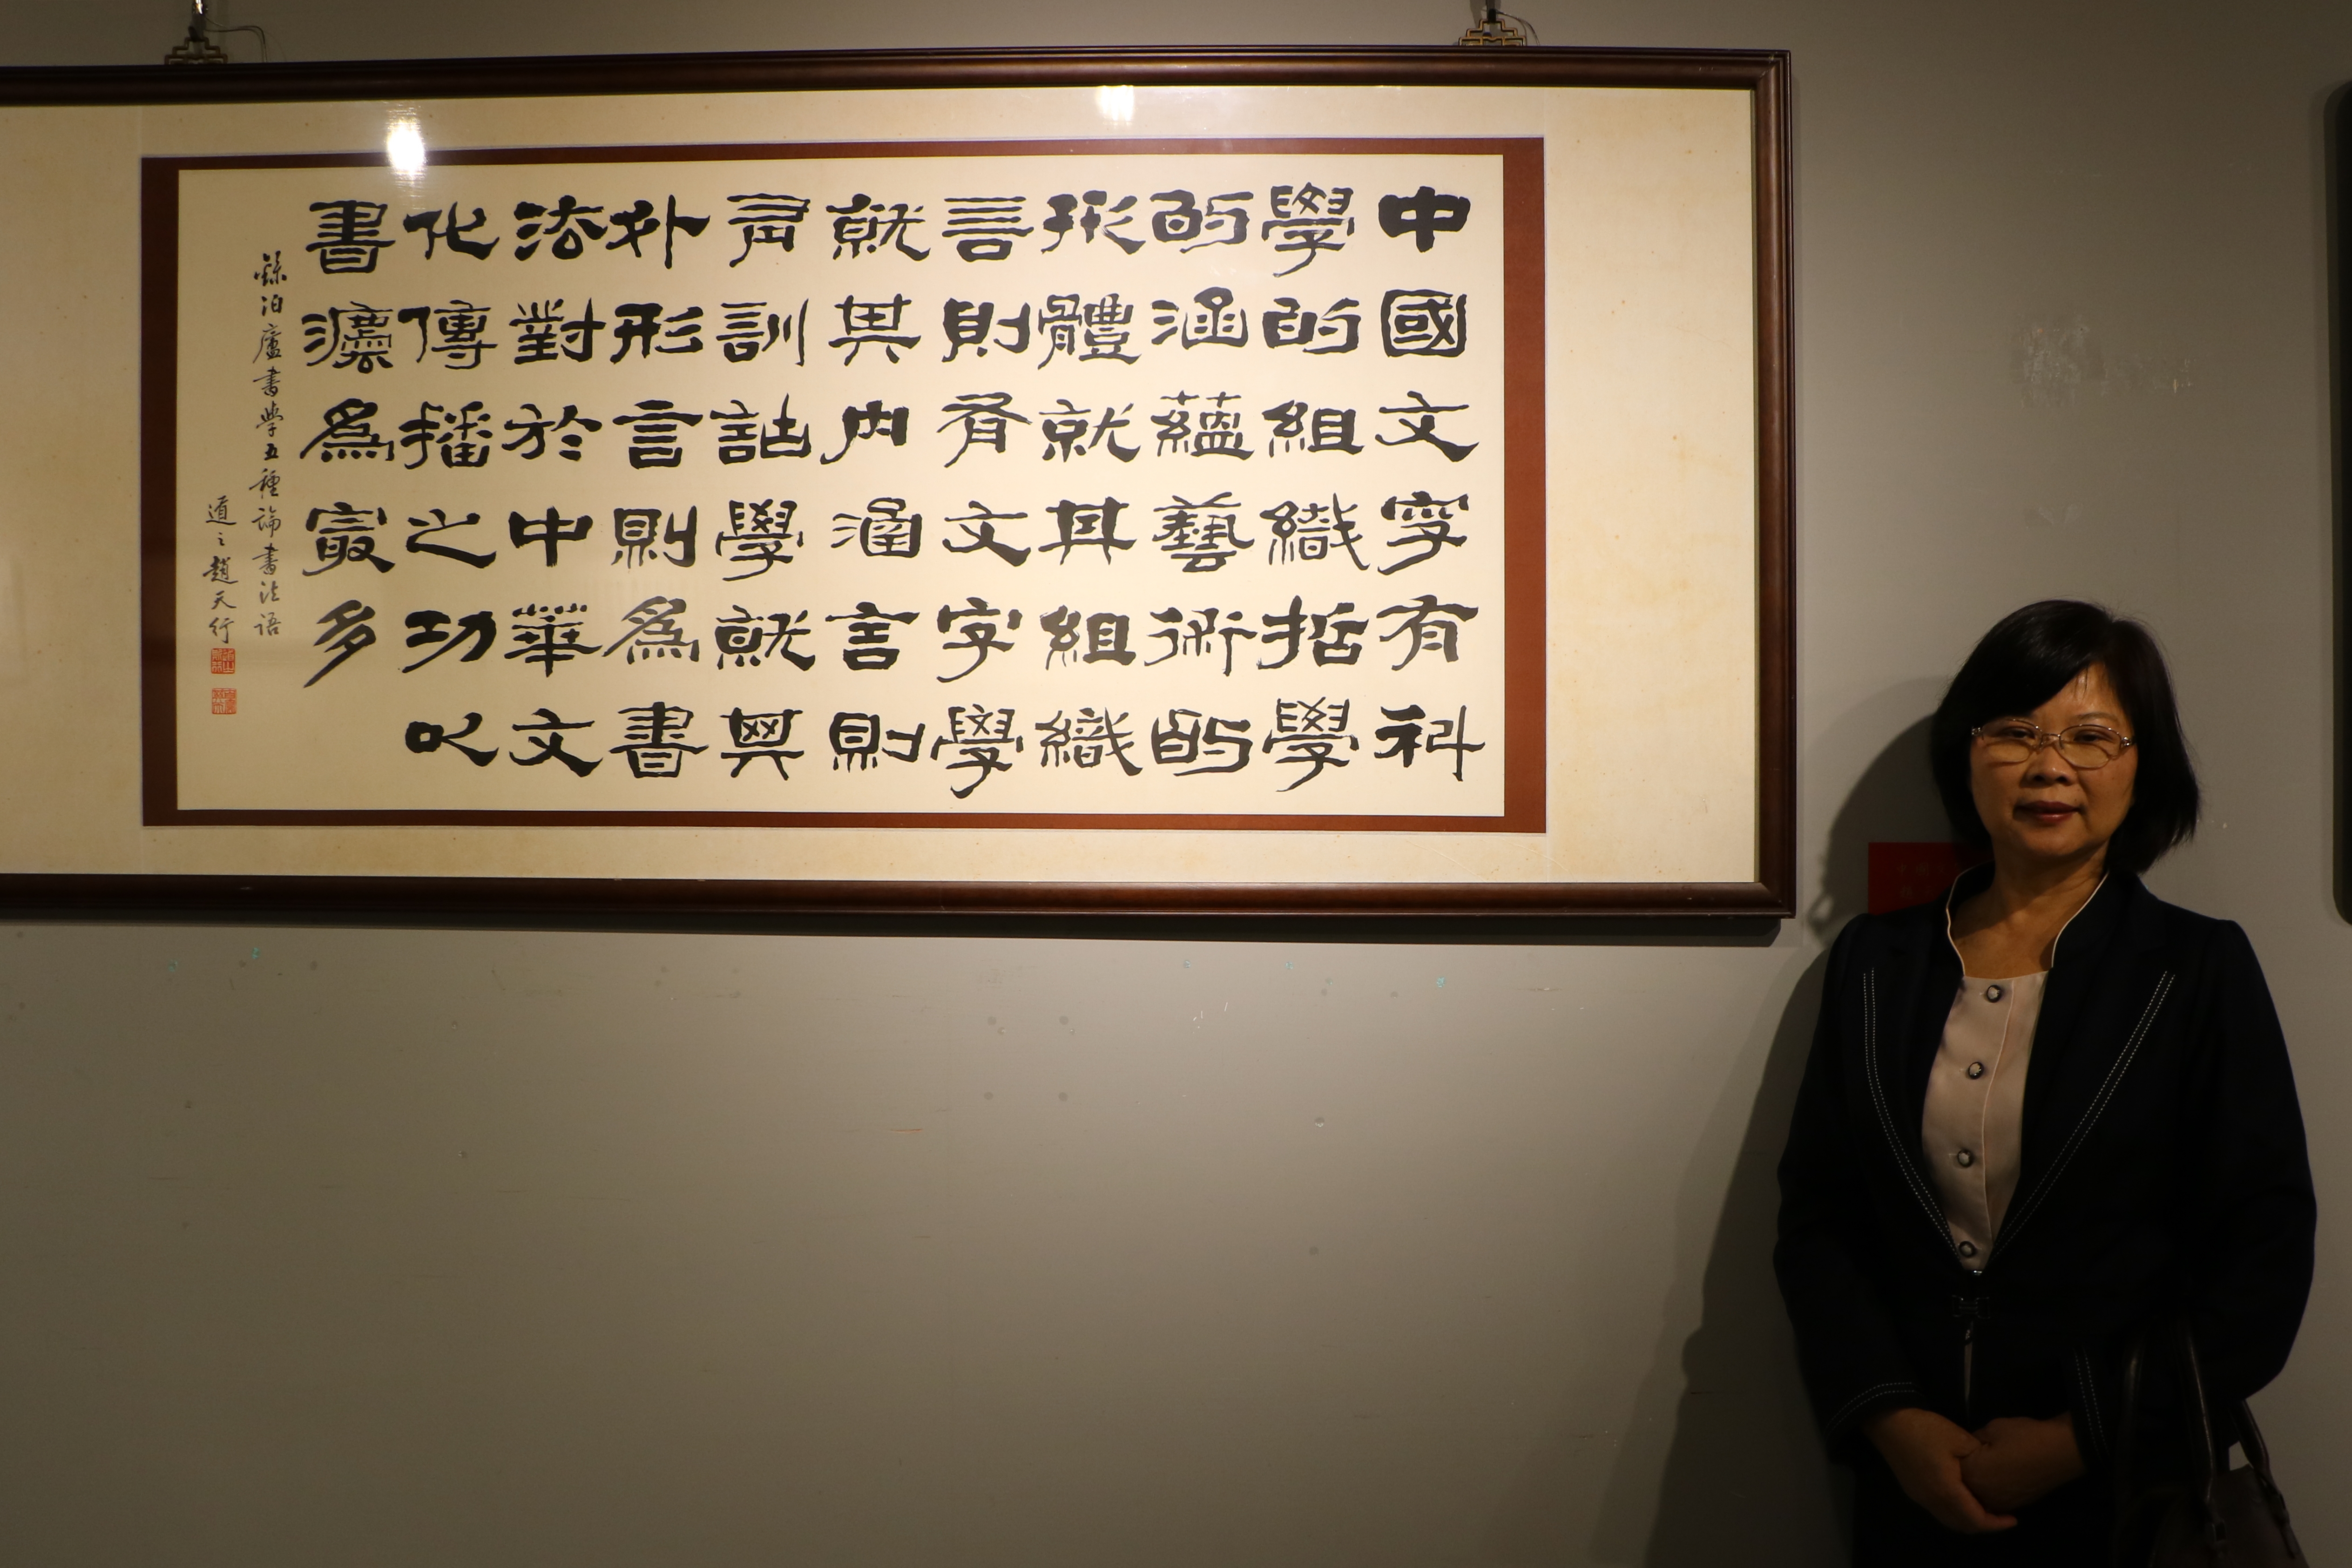 中國文字有科
學的組織哲學
的涵蘊藝術的
形體就其組織
言則有文字學
就其內涵言則
有訓詁學就其
外形言則爲書
法對於中華文
化傳播之功以
書灋爲最多
錄泊廬書學五種論書法語
道之趙天行